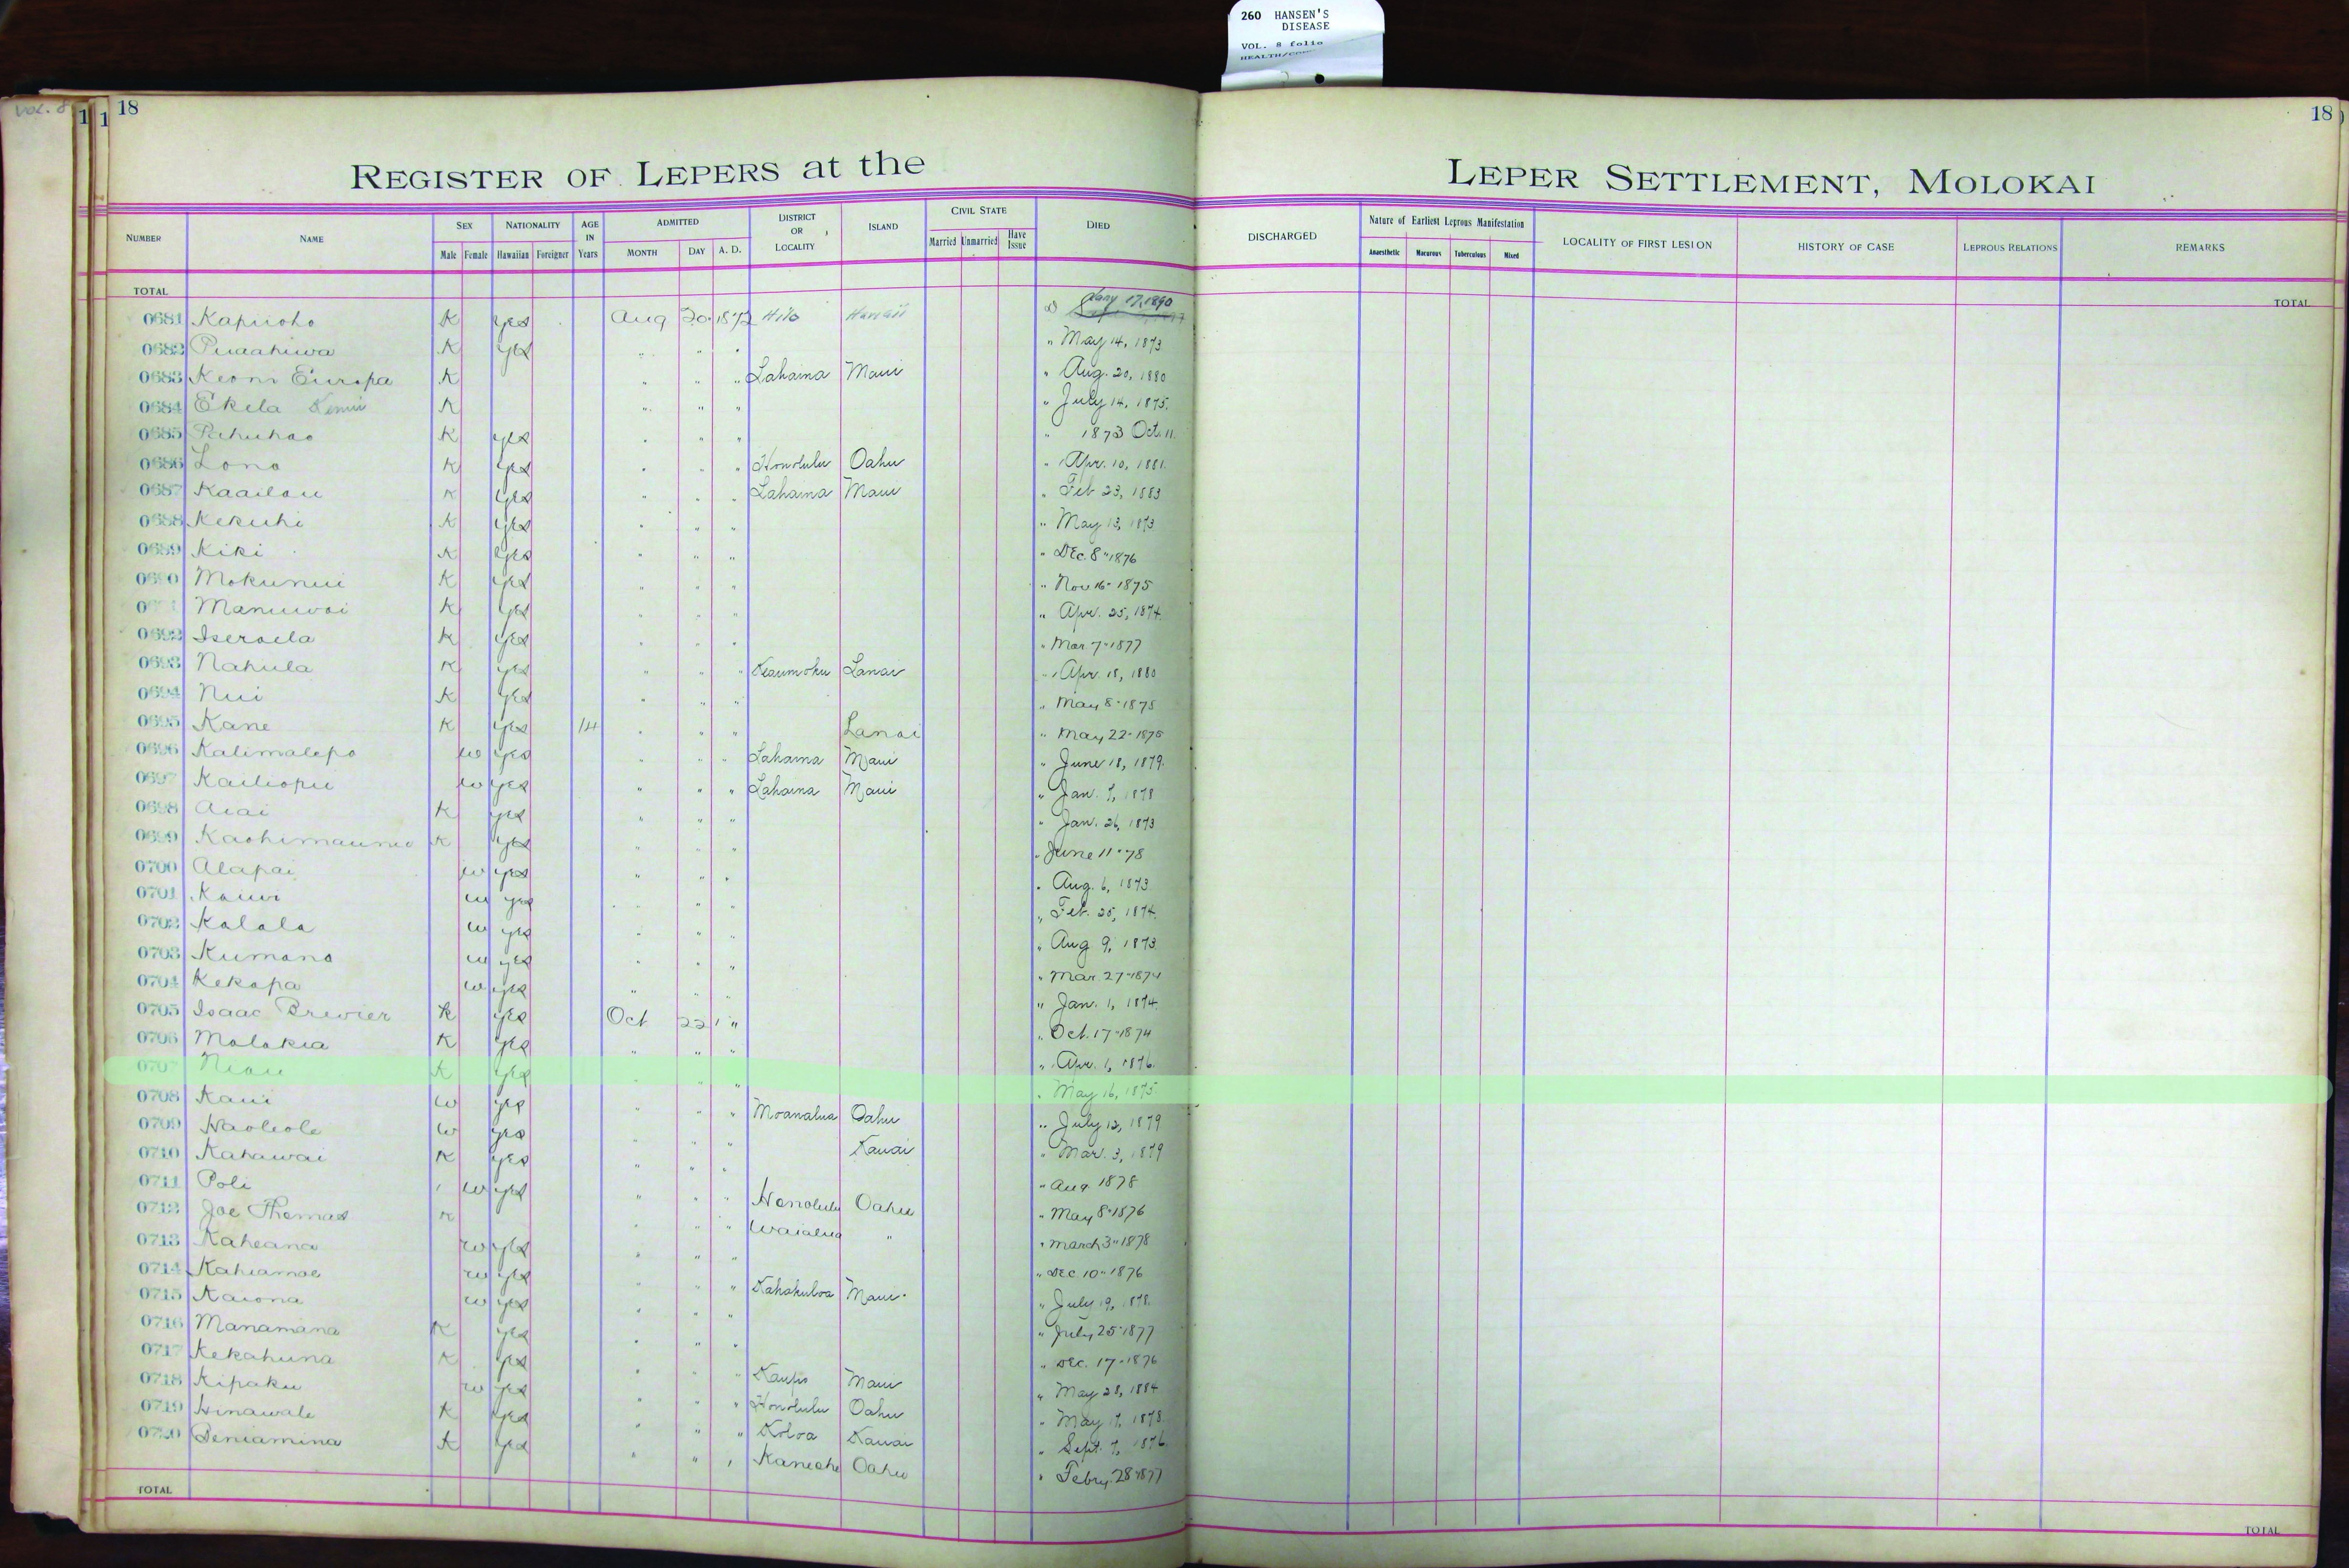 260 HANSEN'S
DISEASE
VOL. 8 folio
VOL. 8
1 1 18
18
REGISTER OF LEPERS at the LEPER SETTLEMENT, MOLOKAI
NUMBER NAME SEX Male Female NATIONALITY Hawaiian Foreigner AGE IN Years ADMITTED MONTH DAY A. D. DISTRICT OR LOCALITY ISLAND CIVIL STATE Married Unmarried Have Issue DIED DISCHARGED Nature of Earliest Leprous Manifestation Anaesthetic Macurous Tuberculous Mixed LOCALITY OF FIRST LESION HISTORY OF CASE LEPROUS RELATIONS REMARKS
TOTAL TOTAL
0681 Kapiioho K yes Aug 20 1872 Hilo Hawaii Jany 17, 1890
0682 Puaahiwa K yes " " " " May 14, 1873
0683 Keoni Europa K " " " Lahaina Maui " Aug. 20, 1880
0684 Ekela K " " " " July 14, 1875.
0685 Pahuhao K yes " " " " 1873 Oct. 11.
0686 Lono K yes " " " Honolulu Oahu " Apr. 10, 1881.
0687 Kaailau K yes " " " Lahaina Maui " Feb 23, 1883
0688 Kekuhi K yes " " " " May 13, 1873
0689 Kiki K yes " " " " Dec. 8" 1876
0690 Mokunui K yes " " " " Nov 16 - 1875
Manuwai K yes " " " " Apr. 25, 1874.
0692 Iseraela K yes " " " " Mar 7" 1877
0693 Nahula K yes " " " Keaumoku Lanai " Apr. 18, 1880
0694 Nui K yes " " " " May 8" 1875
0695 Kane K yes 14 " " " Lanai " May 22 - 1875
0696 Kalimalepo w yes " " " Lahaina Maui " June 18, 1879.
0697 Kailiopu w yes " " " Lahaina Maui " Jan. 7, 1878
0698 Aiai K yes " " " " Jan. 26, 1873
0699 Kaohimaunu K yes " " " " June 11" 78
0700 Alapai w yes " " " " Aug. 6, 1873
0701 Kauwi w yes " " " " Feb. 25, 1874.
0702 Kalala w yes " " " " Aug 9, 1873.
0703 Kumano w yes " " " " Mar 27" 1874
0704 Kekapa w yes " " " " Jan. 1, 1874.
0705 Isaac Brewier K yes Oct 22 " " Oct. 17" 1874
0706 Molokia K yes " " " " Apr. 1, 1876.
0707 Niau K yes " " " " May 16, 1875.
0708 Kaui w yes " " " Moanalua Oahu " July 12, 1879
0709 Haoleole w yes " " " Kauai " Mar. 3, 1879
0710 Kahawai K yes " " " " Aug 1878
0711 Poli w yes " " " Honolulu Oahu " May 8" 1876
0712 Joe Thomas K " " " Waialua " " March 3" 1878
0713 Kaheana w yes " " " " Dec 10" 1876
0714 Kahiamoe w yes " " " Kahakuloa Maui " July 19, 1878.
0715 Kaiona w yes " " " " July 25" 1877
0716 Manamana K yes " " " " Dec. 17 - 1876
0717 Kekahuna K yes " " " Kaupo Maui " May 28, 1884
0718 Kipaku w yes " " " Honolulu Oahu " May 17, 1878.
0719 Hinawale K yes " " " Koloa Kauai " Sept. 7, 1876.
0720 Beniamina K yes " " " Kaneohe Oahu " Febry. 28" 1877
TOTAL TOTAL